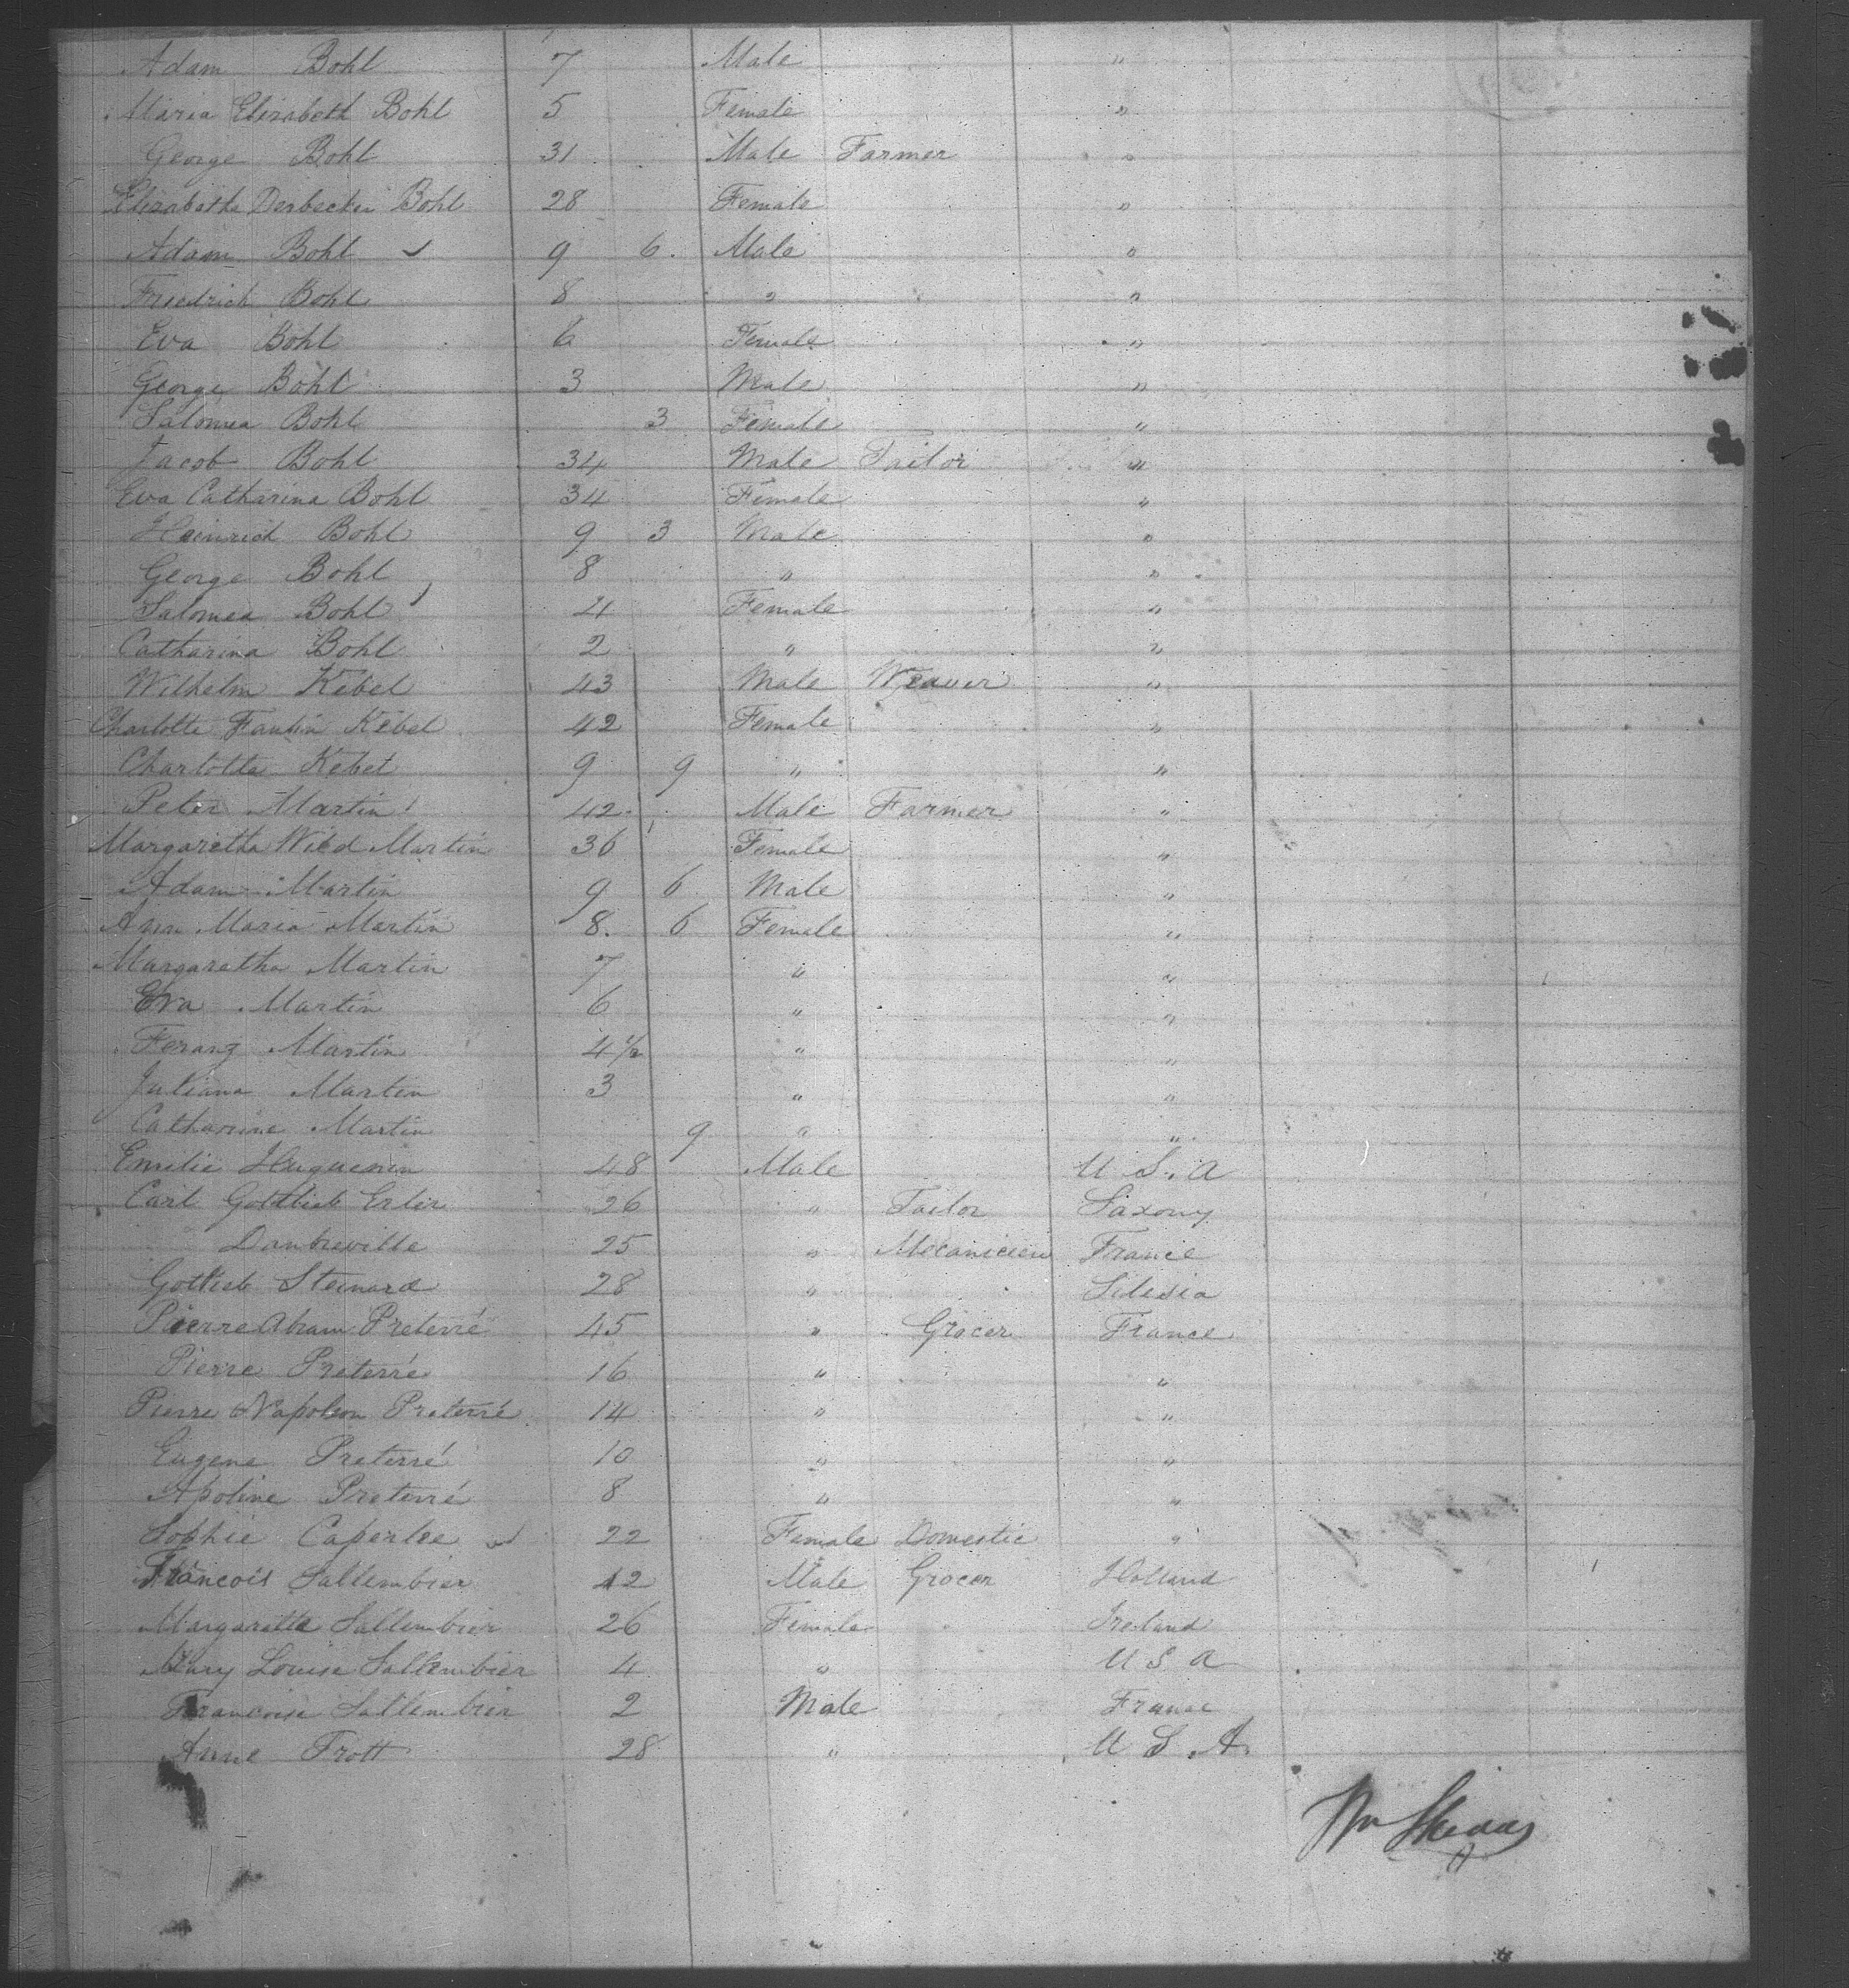 Adam Bohl 7 Male "
Maria Elisabeth Bohl 5 Female "
George Bohl 31 Male Farmer "
Elisabetha Derbecker Bohl 28 Female "
Adam Bohl 9 6 Male "
Friedrich Bohl 8 " "
Eva Bohl 6 Female "
George Bohl 3 Male "
Salomea Bohl 3 Female "
Jacob Bohl 34 Male Tailor "
Eva Catharina Bohl 34 Female "
Heinrich Bohl 9 3 Male "
George Bohl 8 " "
Salomea Bohl 4 Female "
Catharina Bohl 2 " "
Wilhelm Kebel 43 Male Weaver "
Charlotte Kebel 42 Female "
Charlotte Kebel 9 9 " "
Peter Martin 42 Male Farmer "
Margaretha Wied Martin 36 Female "
Adam Martin 9 6 Male "
Ann Maria Martin 8. 6 Female "
Margaretha Martin 7 " "
Eva Martin 6 " "
Martin 4 1/2 " "
Juliana Martin 3 " "
Catharine Martin 9 " "
Emilie Huguenin 48 Male U S. A
Carl Gottlieb Erler 26 " Tailor Saxony
Danbreville 25 " Mecanicien France
Gottlieb Steinard 28 " Silesia
Pierre Abram Preterré 45 " Grocer France
Pierre Preterré 16 " "
Pierre Napoleon Preterré 14 " "
Eugene Preterré 10 " "
Apoline Preterré 8 " "
Sophie Caperlee 22 Female Domestic "
Francois Sallembier 42 Male Grocer Holland
Margarette Sallembier 26 Female Ireland
Mary Louise Sallembier 4 " U S A
Francoise Sallembier 2 Male France
Anne Trott 28 " U S. A